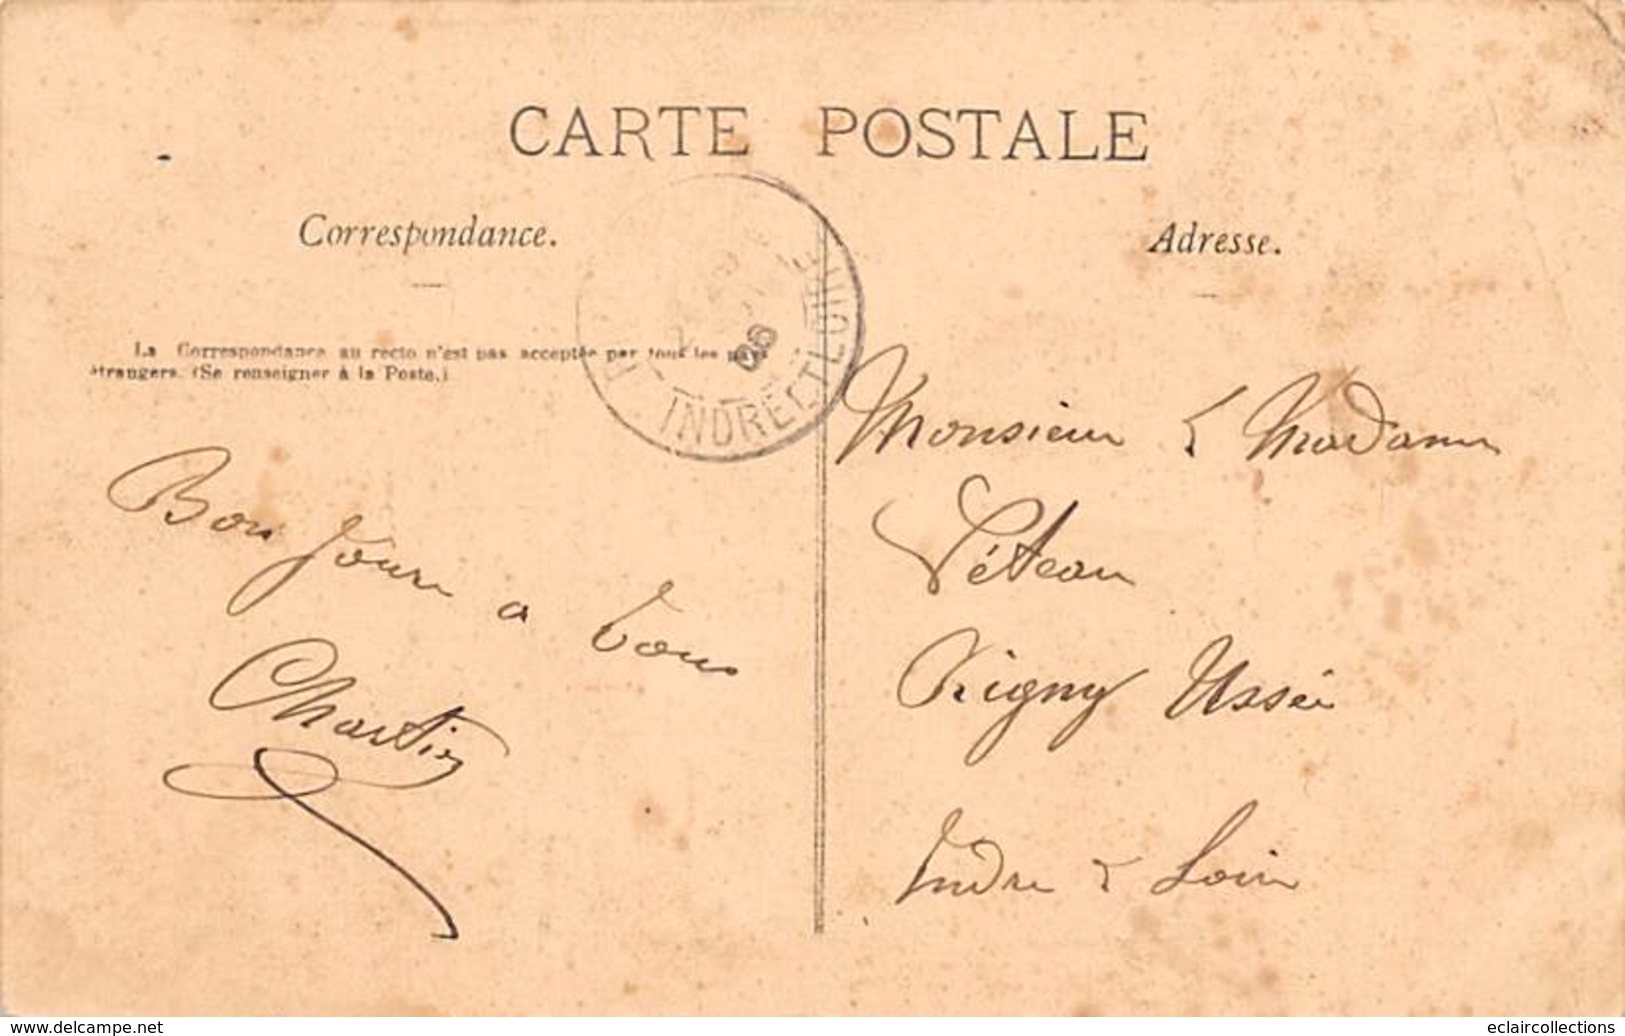 CARTE POSTALE
Correspondance.
Adresse.
La Correspondance au recto n'est pas acceptée par tous les pays
étrangers. (Se renseigner à la Poste.)
06
INDRE ET LOIRE
Bon jour a tous
Chartin
Monsieur & Madame
Péteau
Rigny Ussée
Indre & Loire
www.delcampe.net
eclaircollections